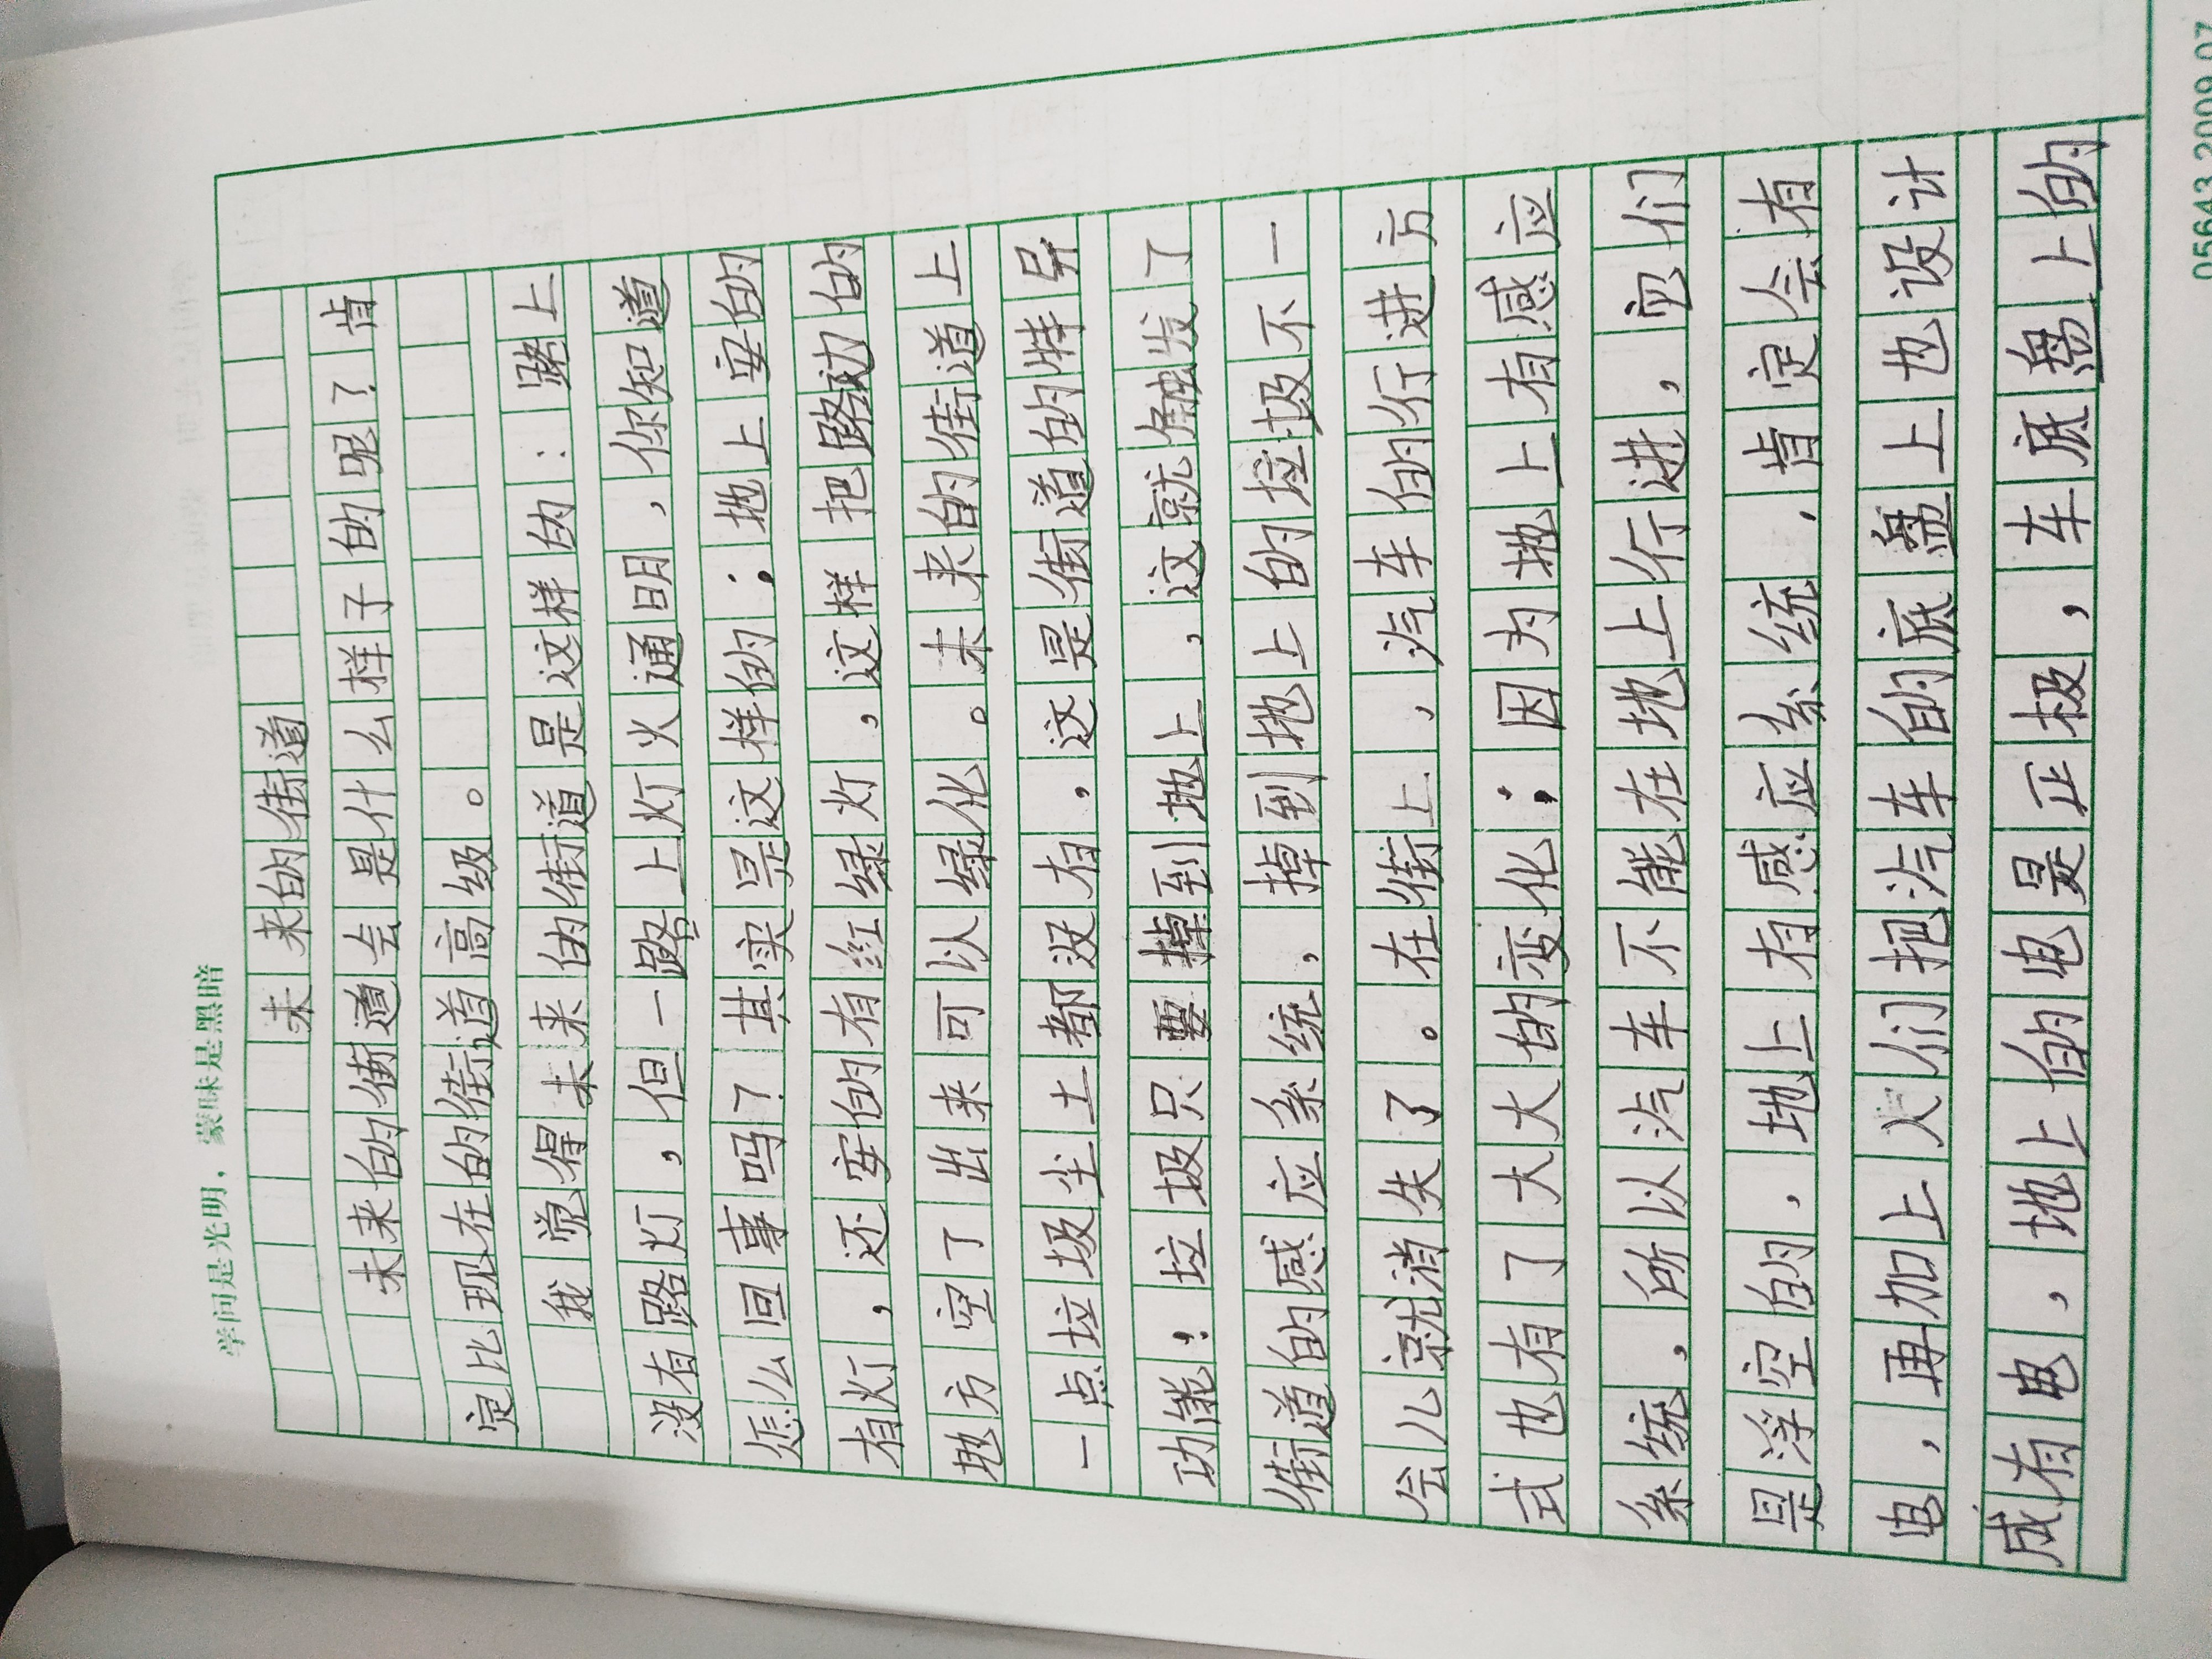 学问是光明，蒙昧是黑暗
未来的街道
未来的街道会是什么样子的呢？肯
定比现在的街道高级。
我觉得未来的街道是这样的：路上
没有路灯，但一路上灯火通明，你知道
怎么回事吗？其实是这样的；地上安的
有灯，还安的有红绿灯，这样把路边的
地方空了出来可以绿化。未来的街道上
一点垃圾尘土都没有，这是街道的特异
功能，垃圾只要掉到地上，这就触发了
街道的感应系统，掉到地上的垃圾不一
会儿就消失了。在街上，汽车的行进方
式也有了大大的变化；因为地上有感应
系统，所以汽车不能在地上行进，它们
是浮空的，地上有感应系统，肯定会有
电，再加上人们把汽车的底盘上也设计
成有电，地上的电是正极，车底盘上的
05643.2009.07